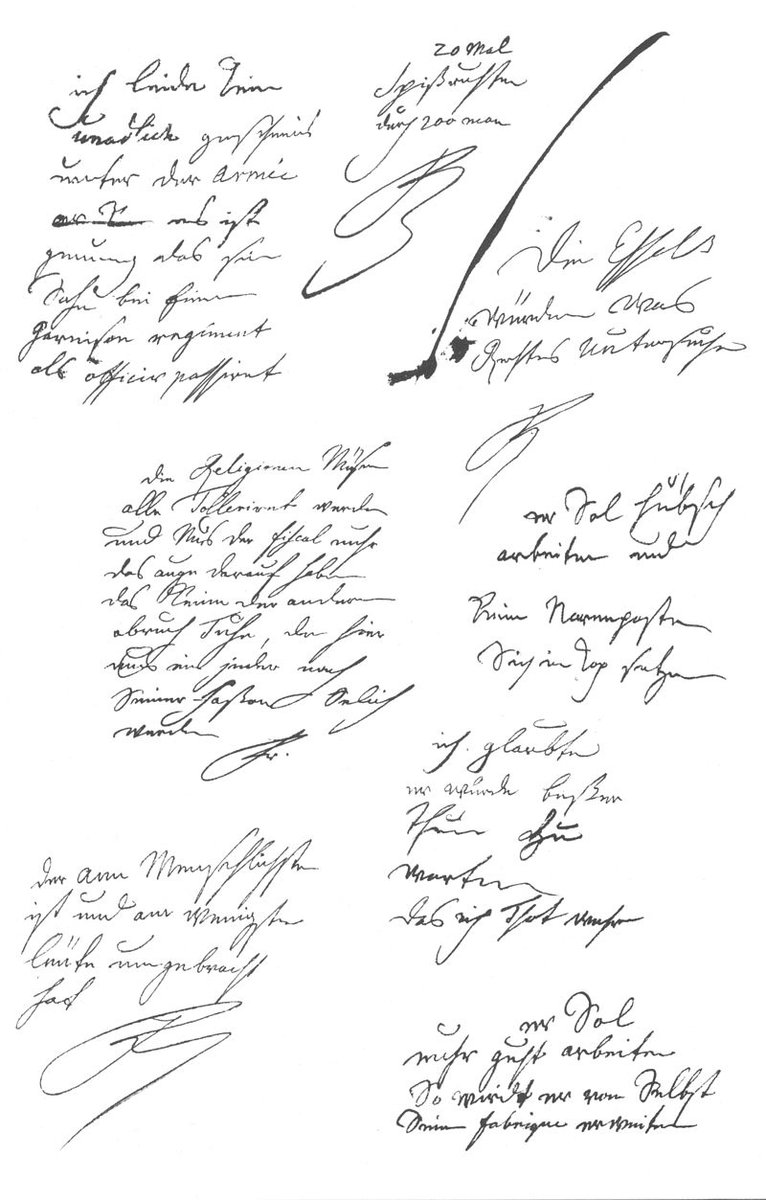 ich leide kein
unadlich geschmeis
unter der Armée
es ist
genung das sein
Sohn bei einem
Garnison regiment
als officir passiret
20 Mal
Spißruhten
durch 200 man
Die Essels
würden was
Rechtes Untersuchen
die Religionen Müsen
alle Tolleriret werden
und Mus der fiscal nuhr
das auge darauf haben
das Keine der anderen
abruch Tuhe, den hier
mus ein jeder nach
Seiner Faßon Selich
werden
Fr.
er Sol hübsch
arbeiten und
keine Narrenposten
Sich in Kop setzen
ich glaubte
er würde beßer
Thun zu
warten
das ich Thot wehre
der am Menschlichsten
ist und am wenigsten
leüte umgebracht
hat
er Sol
nuhr guht arbeiten
So wirdt er von Selbst
Seine fabrique erweitern